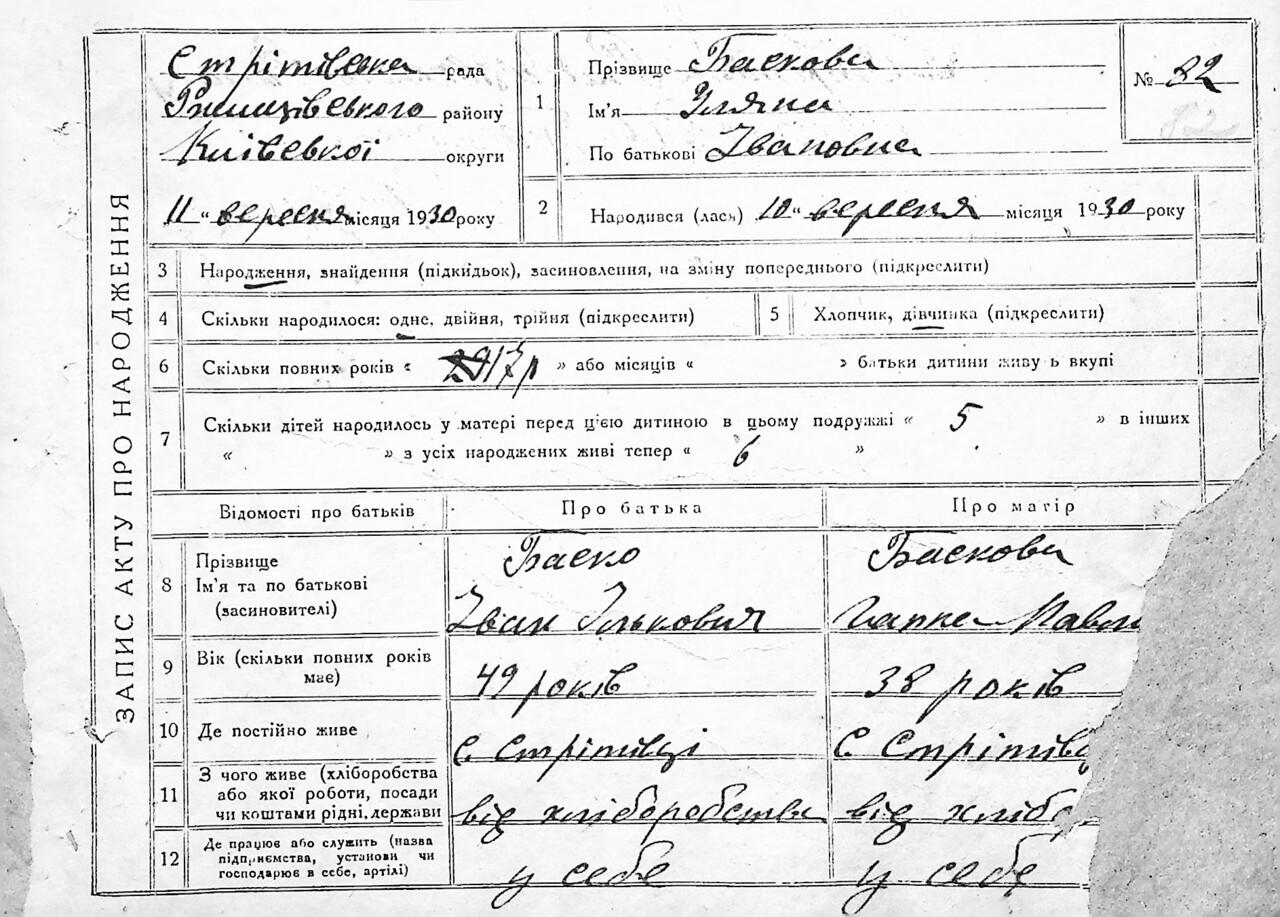 ЗАПИС АКТУ ПРО НАРОДЖЕННЯ
Стрітівська рада
Ржищівського району
Київської округи
11 " вересня місяця 1930 року
1
Прізвище Баскова
Ім'я Уляна
По батькові Івановна
№ 82
82
2
Народився (лася) 10 " вересня місяця 1930 року
3 Народження, знайдення (підкидьок), засиновлення, на зміну попереднього (підкреслити)
4 Скільки народилося: одне, двійня, трійня (підкреслити)
5 Хлопчик, дівчинка (підкреслити)
6 Скільки повних років « 17 р » або місяців « » батьки дитини живуть вкупі
7 Скільки дітей народилось у матері перед ц'єю дитиною в цьому подружжі « 5 » в інших
« » з усіх народжених живі тепер « 6 »
Відомості про батьків Про батька Про матір
8 Прізвище Баско Баскова
Ім'я та по батькові
(засиновителі) Іван Ількович Гапка Павл
9 Вік (скільки повних років
має) 49 років 38 років
10 Де постійно живе с Стрітівці с Стрітівц
11 З чого живе (хліборобства
або якої роботи, посади
чи коштами рідні, держави від хліборобства від хлібо
12 Де працює або служить (назва
підприємства, установи чи
господарює в себе, артілі) у себе у себе